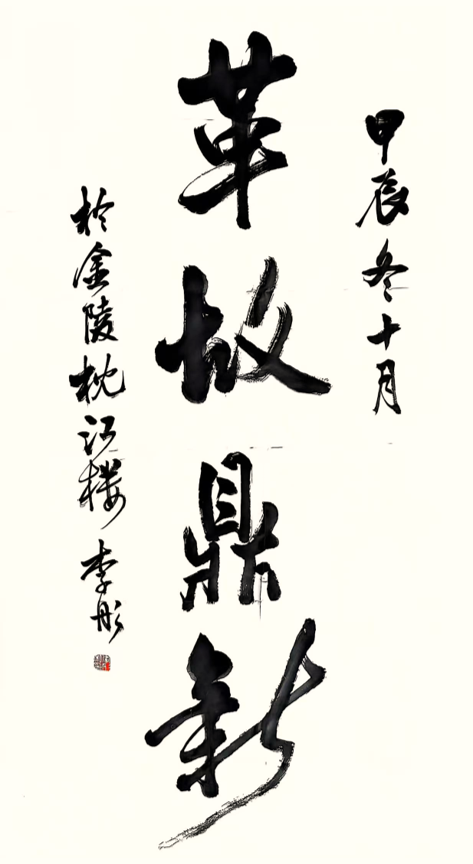 甲辰冬十月
革故鼎新
於金陵枕江楼 李彤